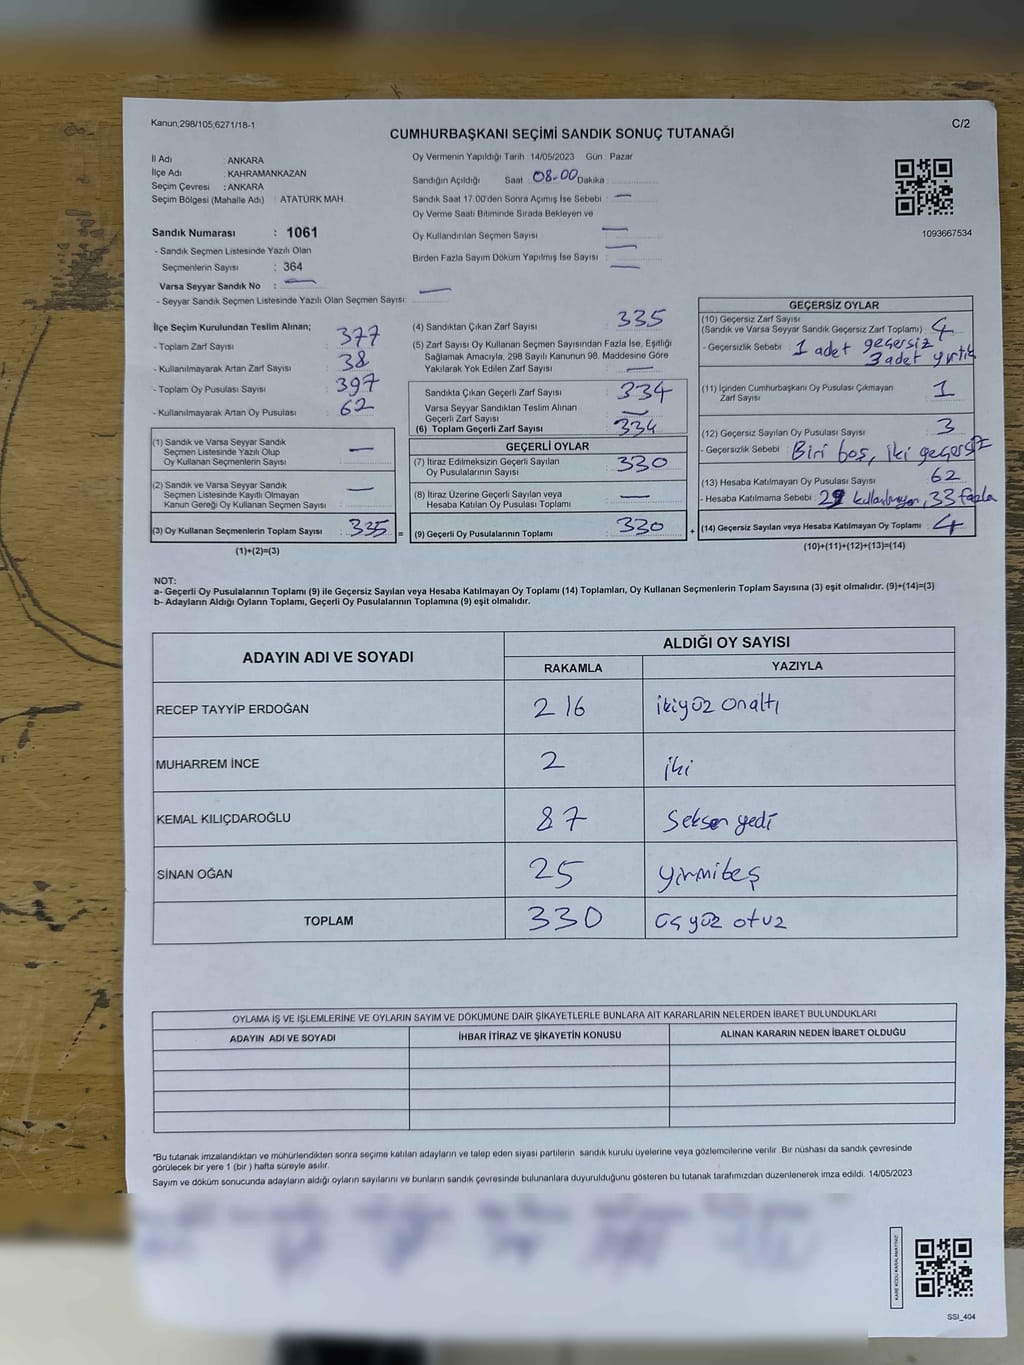 Kanun;298/105;6271/18-1
CUMHURBAŞKANI SEÇİMİ SANDIK SONUÇ TUTANAĞI
C/2
İl Adı : ANKARA
İlçe Adı : KAHRAMANKAZAN
Seçim Çevresi : ANKARA
Seçim Bölgesi (Mahalle Adı) : ATATÜRK MAH.
Sandık Numarası : 1061
- Sandık Seçmen Listesinde Yazılı Olan
Seçmenlerin Sayısı : 364
Varsa Seyyar Sandık No : —
- Seyyar Sandık Seçmen Listesinde Yazılı Olan Seçmen Sayısı: —
Oy Vermenin Yapıldığı Tarih : 14/05/2023 Gün : Pazar
Sandığın Açıldığı Saat : 08.00 Dakika :
Sandık Saat 17.00'den Sonra Açımış İse Sebebi : —
Oy Verme Saati Bitiminde Sırada Bekleyen ve —
Oy Kullandırılan Seçmen Sayısı : —
Birden Fazla Sayım Döküm Yapılmış İse Sayısı : —
1093667534
İlçe Seçim Kurulundan Teslim Alınan;
- Toplam Zarf Sayısı : 377
- Kullanılmayarak Artan Zarf Sayısı : 38
- Toplam Oy Pusulası Sayısı : 397
- Kullanılmayarak Artan Oy Pusulası : 62
(1) Sandık ve Varsa Seyyar Sandık
Seçmen Listesinde Yazılı Olup
Oy Kullanan Seçmenlerin Sayısı : —
(2) Sandık ve Varsa Seyyar Sandık
Seçmen Listesinde Kayıtlı Olmayan
Kanun Gereği Oy Kullanan Seçmen Sayısı : —
(3) Oy Kullanan Seçmenlerin Toplam Sayısı : 335 =
(1)+(2)=(3)
(4) Sandıktan Çıkan Zarf Sayısı : 335
(5) Zarf Sayısı Oy Kullanan Seçmen Sayısından Fazla İse, Eşitliği
Sağlamak Amacıyla, 298 Sayılı Kanunun 98. Maddesine Göre
Yakılarak Yok Edilen Zarf Sayısı : —
Sandıkta Çıkan Geçerli Zarf Sayısı : 334
Varsa Seyyar Sandıktan Teslim Alınan
Geçerli Zarf Sayısı : —
(6) Toplam Geçerli Zarf Sayısı : 334
GEÇERLİ OYLAR
(7) İtiraz Edilmeksizin Geçerli Sayılan
Oy Pusulalarının Sayısı : 330
(8) İtiraz Üzerine Geçerli Sayılan veya
Hesaba Katılan Oy Pusulası Toplamı : —
(9) Geçerli Oy Pusulalarının Toplamı : 330 +
GEÇERSİZ OYLAR
(10) Geçersiz Zarf Sayısı
(Sandık ve Varsa Seyyar Sandık Geçersiz Zarf Toplamı) : 4
- Geçersizlik Sebebi : 1 adet geçersiz
3 adet yırtık
(11) İçinden Cumhurbaşkanı Oy Pusulası Çıkmayan
Zarf Sayısı : 1
(12) Geçersiz Sayılan Oy Pusulası Sayısı : 3
- Geçersizlik Sebebi : Biri boş, iki geçersiz
(13) Hesaba Katılmayan Oy Pusulası Sayısı : 62
- Hesaba Katılmama Sebebi : 29 kullanılmayan, 33 fazla
(14) Geçersiz Sayılan veya Hesaba Katılmayan Oy Toplamı : 4
(10)+(11)+(12)+(13)=(14)
NOT:
a- Geçerli Oy Pusulalarının Toplamı (9) ile Geçersiz Sayılan veya Hesaba Katılmayan Oy Toplamı (14) Toplamları, Oy Kullanan Seçmenlerin Toplam Sayısına (3) eşit olmalıdır. (9)+(14)=(3)
b- Adayların Aldığı Oyların Toplamı, Geçerli Oy Pusulalarının Toplamına (9) eşit olmalıdır.
ADAYIN ADI VE SOYADI
ALDIĞI OY SAYISI
RAKAMLA YAZIYLA
RECEP TAYYİP ERDOĞAN 216 ikiyüz onaltı
MUHARREM İNCE 2 iki
KEMAL KILIÇDAROĞLU 87 Seksen yedi
SİNAN OĞAN 25 yirmibeş
TOPLAM 330 üç yüz otuz
OYLAMA İŞ VE İŞLEMLERİNE VE OYLARIN SAYIM VE DÖKÜMÜNE DAİR ŞİKAYETLERLE BUNLARA AİT KARARLARIN NELERDEN İBARET BULUNDUKLARI
ADAYIN ADI VE SOYADI İHBAR İTİRAZ VE ŞİKAYETİN KONUSU ALINAN KARARIN NEDEN İBARET OLDUĞU
*Bu tutanak imzalandıktan ve mühürlendikten sonra seçime katılan adayların ve talep eden siyasi partilerin sandık kurulu üyelerine veya gözlemcilerine verilir. Bir nüshası da sandık çevresinde
görülecek bir yere 1 (bir ) hafta süreyle asılır.
Sayım ve döküm sonucunda adayların aldığı oyların sayılarını ve bunların sandık çevresinde bulunanlara duyurulduğunu gösteren bu tutanak tarafımızdan düzenlenerek imza edildi. 14/05/2023
KARE KODU KARALAMAYINIZ!
SSI_404